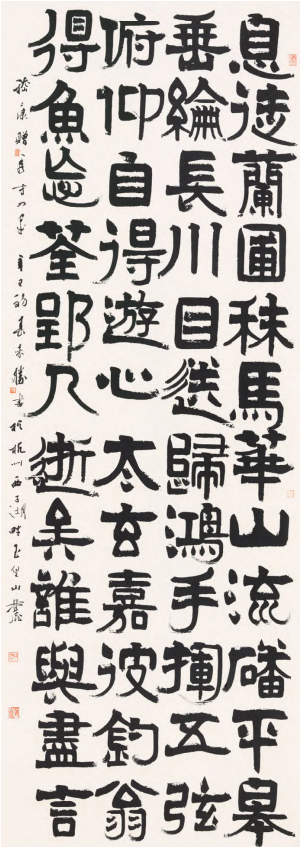 息徒蘭圃秣馬華山流磻平皋
垂綸長川目送歸鴻手揮五弦
俯仰自得遊心太玄嘉彼釣翁
得魚忘荃郢人逝矣誰與盡言
嵇康贈秀才辛巳初書於杭州西子湖畔玉皇山麓